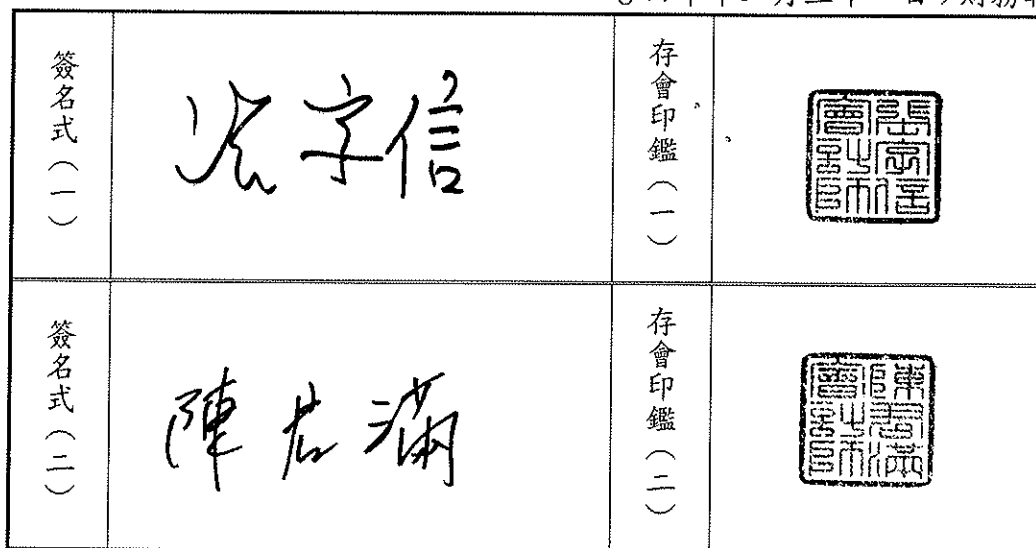 簽名式（一）
張字信
存會印鑑（一）
簽名式（二）
陳君滿
存會印鑑（二）